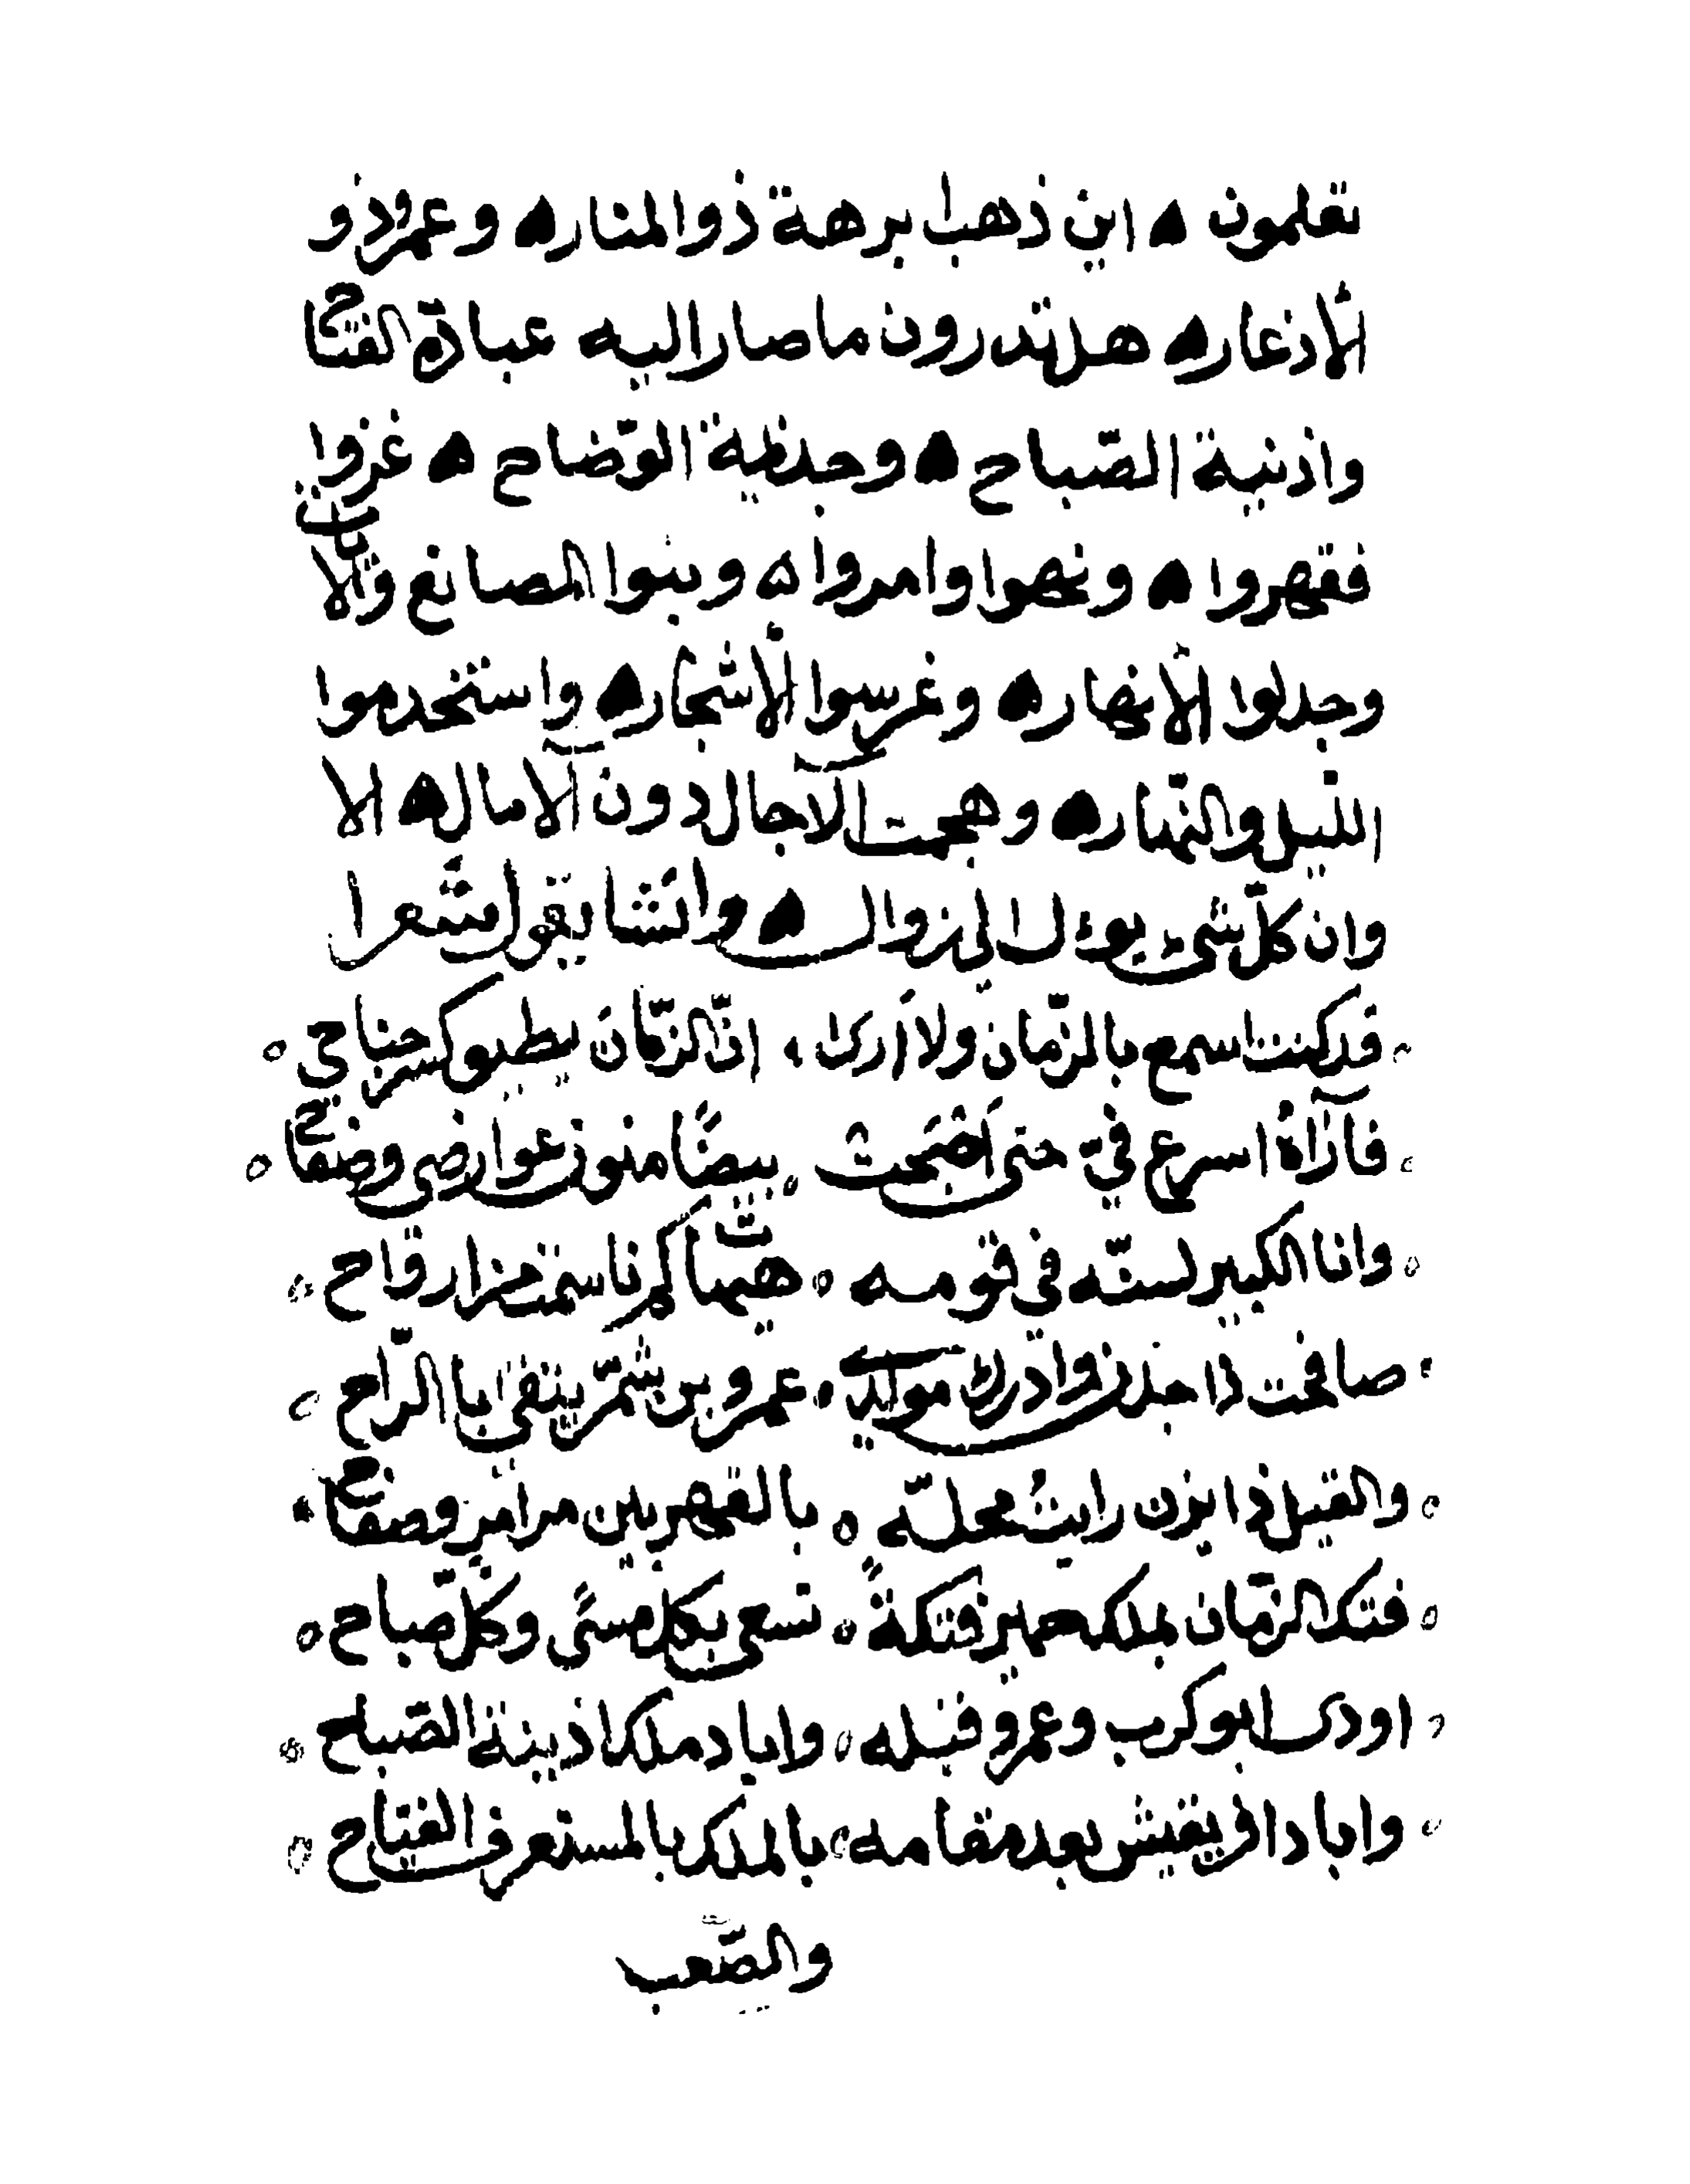 تعلمون ۞ اين ذهب ابرهة ذوالمنار ۞ وعمرو ذو
الأذعار ۞ هل تدرون ما صار اليه عبادة الفتاح
واذنية الصّباح ۞ وجذيمة الوضّاح ۞ غزوا
فقهروا ۞ ونهوا وامروا ۞ وبنوا المصانع والآبات
وجدلوا الأنهار ۞ وغرسوا الأشجار ۞ واستخدموا
الليل والنّهار ۞ وهجمت الآجال دون الآمال ۞ الا
وان كلّ شىء يوءل الى زوال ۞ وانشا يقول شعرا
قد كنت اسمع بالزّمان ولا أرى ، انّ الزّمان يطيق كسر جناحي
فآراهُ اسرع فيّ حتى أضبحت ، بيضًا متون عوارضى وصفاح
وانا الكبير لسنّه في قومه ، هيهات كم ناسمت من ارواح
صافحت ذا جدن وادرك مولدى ، عمرو بن شمّر يتقى بالرّاح
والقيل ذا يزن رايتُ محلّه ، بالقهر بين مرامر وصفاح
فتك الزّمان بملك حمير فتكةً ، تسعى بكل مسّى وكلّ صباح
اودى ابو كرب وعمرو قبله ، واباد ملك اذينة الصّباح
واباد افريقيش بعد مقامه ، بالملك بالمستعرف الفتياح
والصّعب